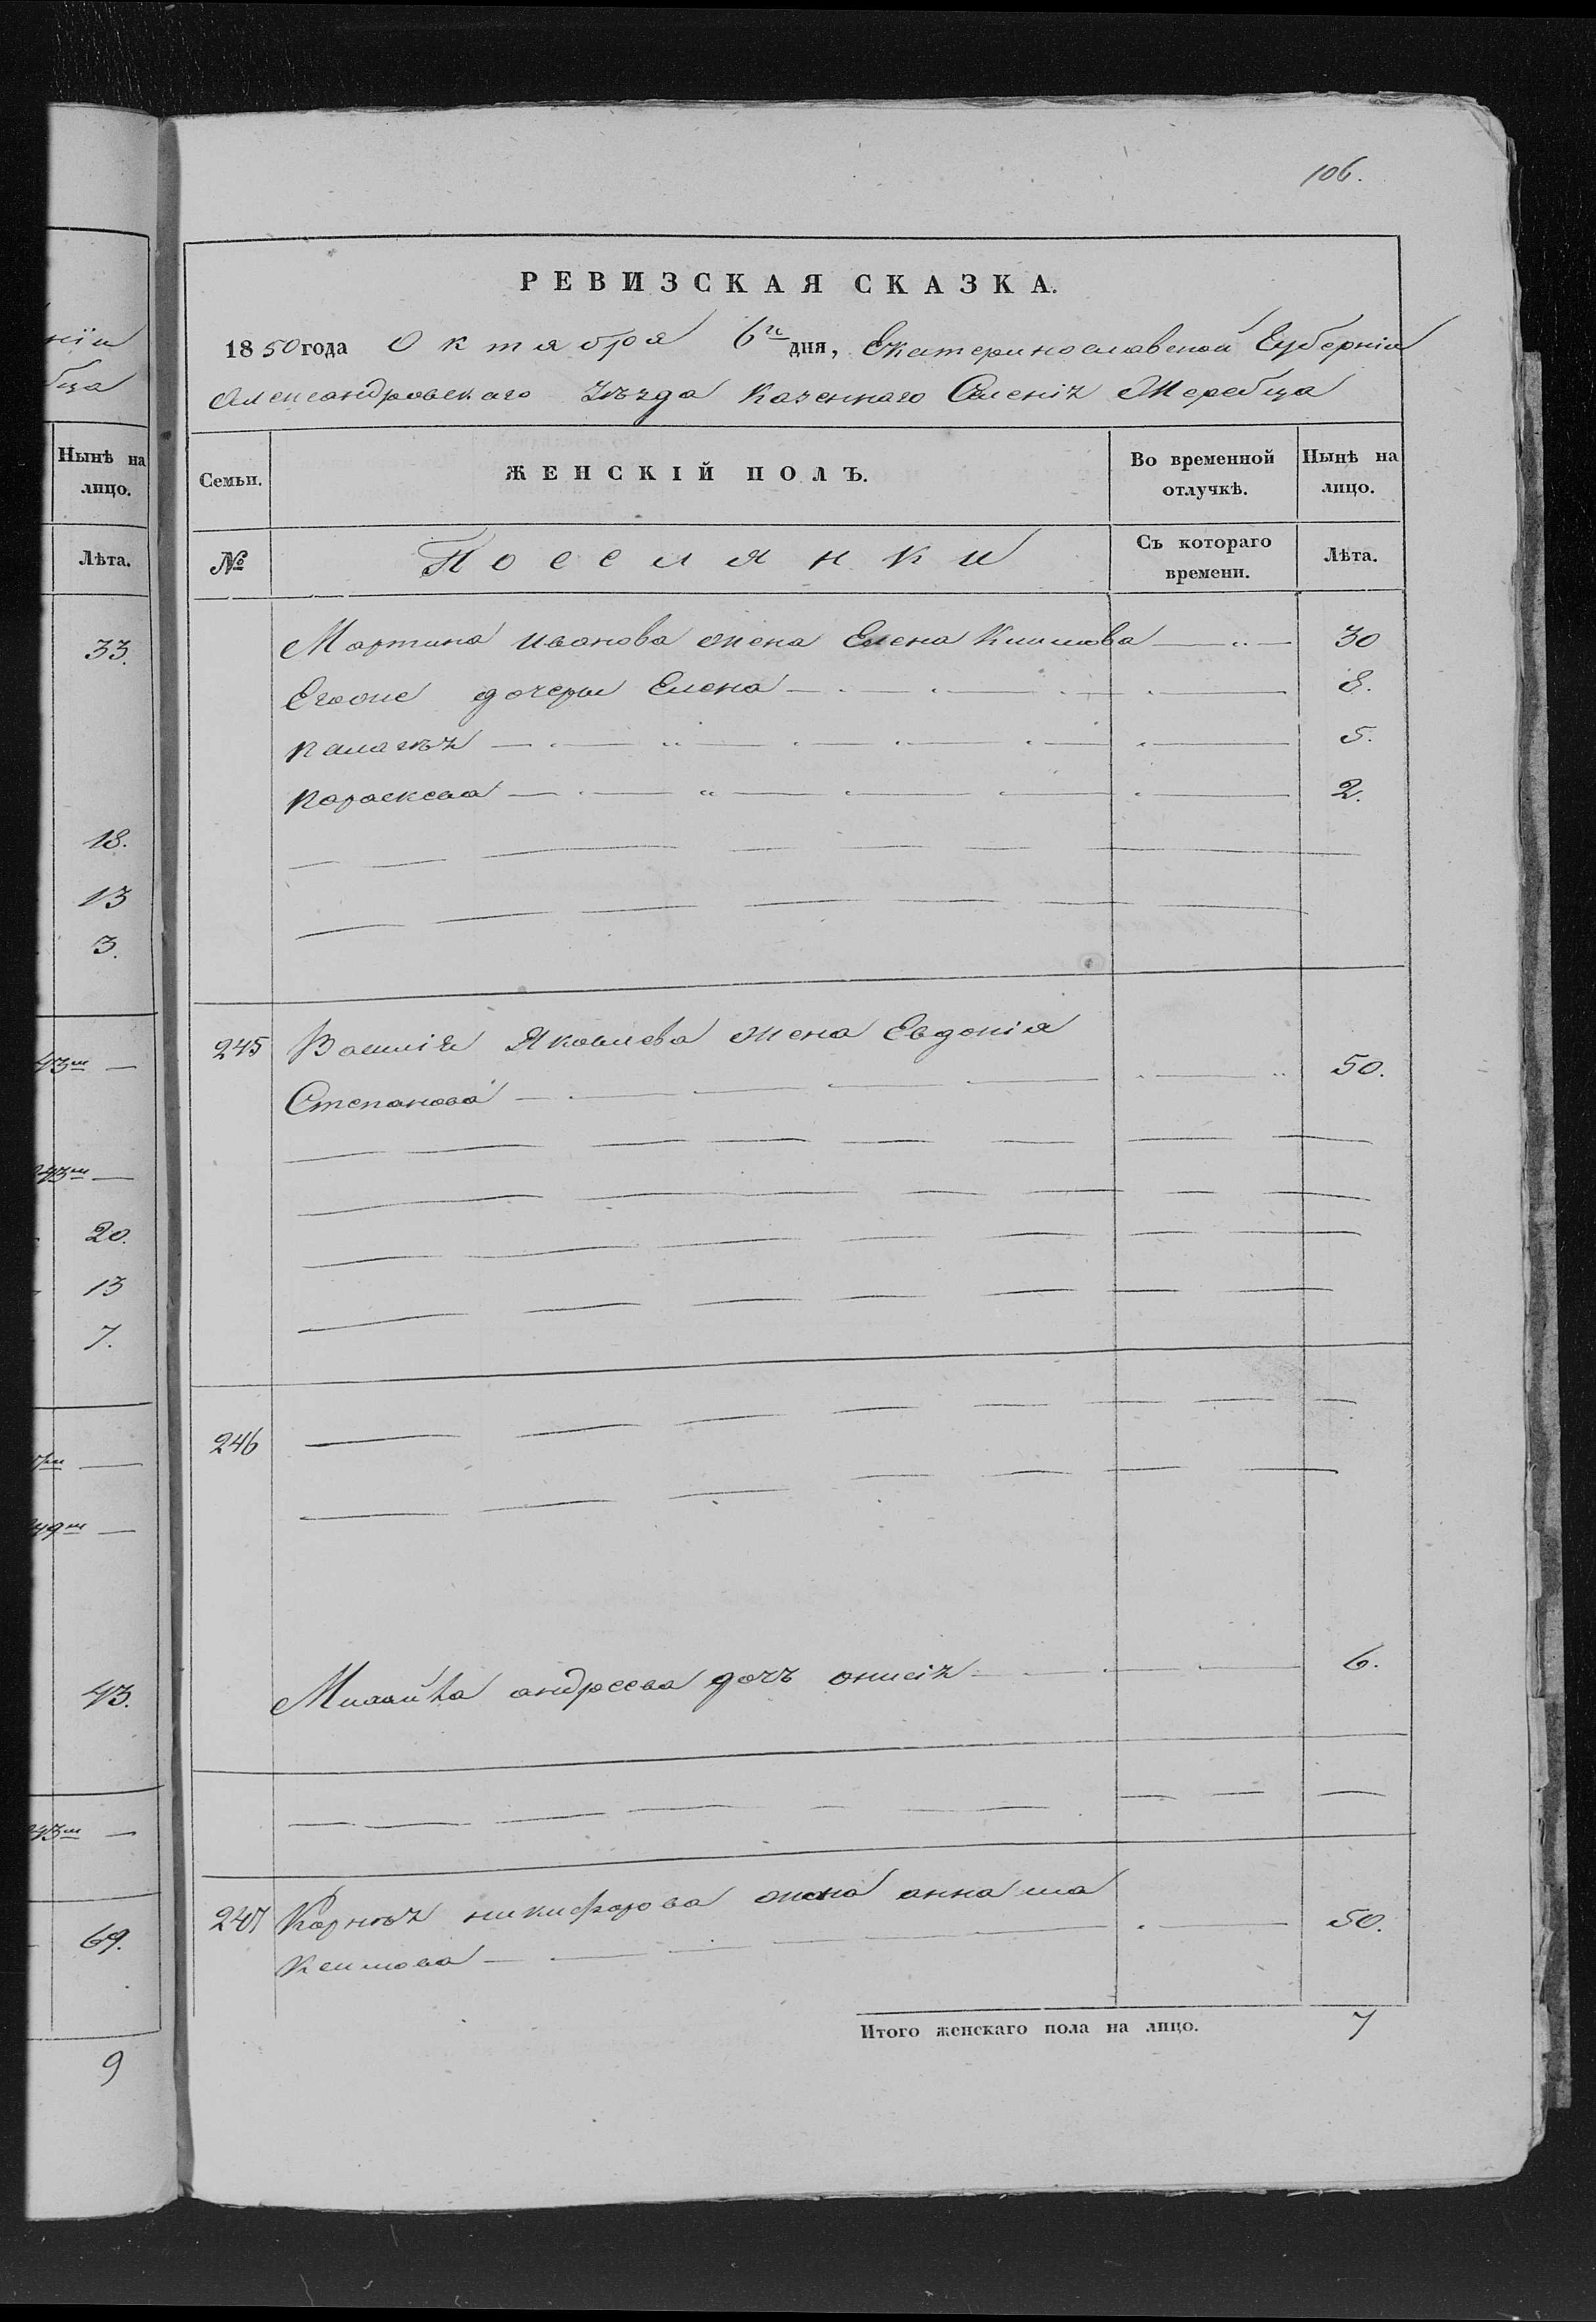 нія
бца
Нынѣ на
лицо.
Лѣта.
33.
18.
13
3.
43м
243м
20.
13
7.
249м
43.
243м
69.
9
106.
РЕВИЗСКАЯ СКАЗКА.
1850 года Октября 6го дня, Екатеринославской Губерніи
Александровскаго Уѣзда Казеннаго Селенія Жеребца
Семьи.
ЖЕНСКІЙ ПОЛЪ.
Во временной
отлучкѣ.
Нынѣ на
лицо.
№
Поселянки
Съ котораго
времени.
Лѣта.
Мартина иванова жена Елена Климова 30
Егоже дочери Елена 8.
палагѣя 5.
параскева 2.
245 Василія Яковлева жена Евдокія
Степанова 50.
246
андреева дочь анисія 6.
247 Карнѣя никифорова жена анна
50.
Итого женскаго пола на лицо. 7